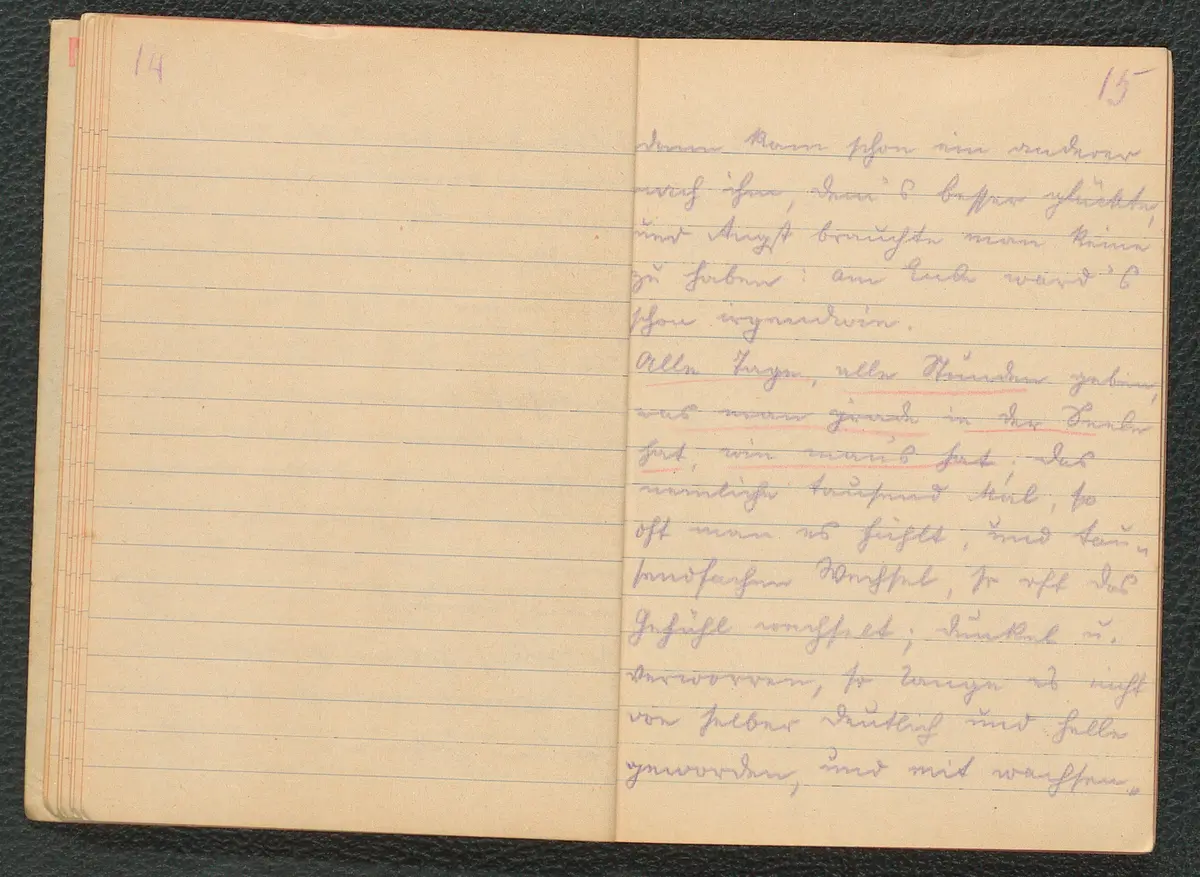 14
15
dann kam schon ein anderer
nach ihm, dem's besser glückte,
und Angst brauchte man keine
zu haben: am Ende ward's
schon irgendwie.
Alle Tage, alle Stunden geben,
was man grade in der Seele
hat, wie man's hat; das
nemliche tausend Mal, so
oft man es fühlt, und tau-
sendfachen Wechsel, so oft das
Gefühl wechselt; dunkel u.
verworren, so lange es nicht
von selber deutlich und helle
geworden, und mit wachsen-